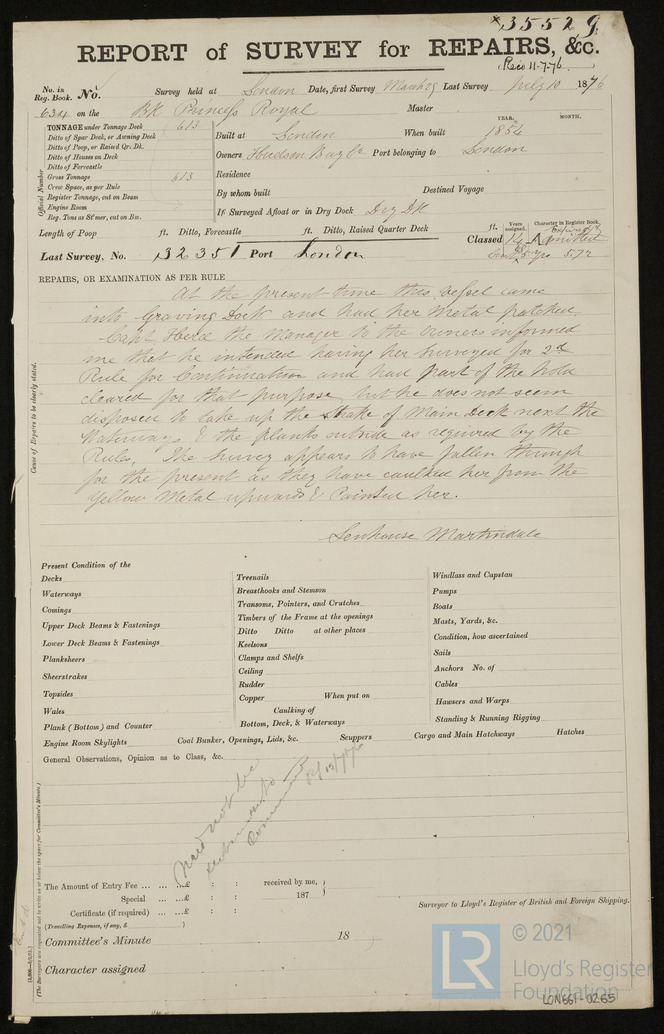 *35529
REPORT of SURVEY for REPAIRS, &c.
Rec 11-7-76
No. in Reg. Book. No. Survey held at London Date, first Survey March 29 Last Survey July 10 1876
634 on the Bk Princess Royal Master
TONNAGE under Tonnage Deck 613
Ditto of Spar Deck, or Awning Deck
Ditto of Poop, or Raised Qr. Dk.
Ditto of Houses on Deck
Ditto of Forecastle
Gross Tonnage 613
Crew Space, as per Rule
Register Tonnage, cut on Beam
Engine Room
Reg. Tons as St'mer, cut on Bm.
Official Number
YEAR. MONTH.
Built at London When built 1854
Owners Hudson Bay Co Port belonging to London
Residence
By whom built Destined Voyage
If Surveyed Afloat or in Dry Dock Dry Dk
Length of Poop ft. Ditto, Forecastle ft. Ditto, Raised Quarter Deck ft.
Years assigned. Character in Register Book.
Classed 14 A
Last Survey, No. 32351 Port London
Cont 5 yrs 5.72
REPAIRS, OR EXAMINATION AS PER RULE
At the present time this Vessel came
into Graving Dock and had her metal patched.
Capt Herd the Manager to the Owners informed
me that he intended having her Surveyed for 2nd
Rule for Continuation and had part of the hold
cleared for that purpose, but he does not seem
disposed to take up the Strake of Main Deck next the
Waterways & the planks outside as required by the
Rules. The Survey appears to have fallen through
for the present as they have caulked her from the
Yellow Metal upwards & Painted her.
Senhouse Martindale
Cause of Repairs to be clearly stated.
Present Condition of the
Decks
Waterways
Comings
Upper Deck Beams & Fastenings
Lower Deck Beams & Fastenings
Planksheers
Sheerstrakes
Topsides
Wales
Plank (Bottom) and Counter
Treenails
Breasthooks and Stemson
Transoms, Pointers, and Crutches
Timbers of the Frame at the openings
Ditto Ditto at other places
Keelsons
Clamps and Shelfs
Ceiling
Rudder
Copper When put on
Caulking of
Bottom, Deck, & Waterways
Windlass and Capstan
Pumps
Boats
Masts, Yards, &c.
Condition, how ascertained
Sails
Anchors No. of
Cables
Hawsers and Warps
Standing & Running Rigging
Engine Room Skylights Coal Bunker, Openings, Lids, &c. Scuppers Cargo and Main Hatchways Hatches
General Observations, Opinion as to Class, &c.
Need not be
submitted to
Committee
13/7/76
The Amount of Entry Fee ... ... ...£ : : received by me,
Special ... ...£ : : 187
Certificate (if required) ... ...£ : :
(Travelling Expenses, if any, £ )
Surveyor to Lloyd's Register of British and Foreign Shipping.
Committee's Minute 18
Character assigned
(The Surveyors are requested not to write on or below the space for Committee's Minute.)
LR
© 2021
Lloyd's Register
Foundation
LON661-0265